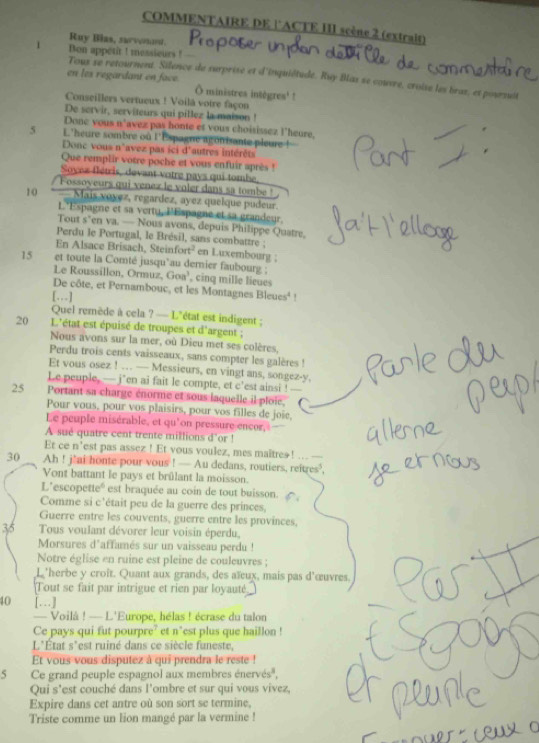 COMMENTAIRE DE l'ACTE III scène 2 (extrait)
Proposer un plan détaillé de commentaire
Ruy Blas, survenant.
1 Bon appétit ! messieurs ! —
Tous se retournent. Silence de surprise et d'inquiétude. Ruy Blas se couvre, croise les bras, et poursuit
en les regardant en face.
Ô ministres intègres¹ !
Conseillers vertueux ! Voilà votre façon
De servir, serviteurs qui pillez la maison !
Donc vous n'avez pas honte et vous choisissez l'heure,
5 L'heure sombre où l'Espagne agonisante pleure !
Donc vous n'avez pas ici d'autres intérêts
Que remplir votre poche et vous enfuir après !
Soyez flétris, devant votre pays qui tombe,
Fossoyeurs qui venez le voler dans sa tombe !
10 — Mais voyez, regardez, ayez quelque pudeur.
L'Espagne et sa vertu, l'Espagne et sa grandeur,
Tout s'en va. — Nous avons, depuis Philippe Quatre,
Perdu le Portugal, le Brésil, sans combattre ;
En Alsace Brisach, Steinfort² en Luxembourg ;
15 et toute la Comté jusqu'au dernier faubourg ;
Le Roussillon, Ormuz, Goa³, cinq mille lieues
De côte, et Pernambouc, et les Montagnes Bleues⁴ !
[…]
Quel remède à cela ? — L'état est indigent ;
20 L'état est épuisé de troupes et d'argent ;
Nous avons sur la mer, où Dieu met ses colères,
Perdu trois cents vaisseaux, sans compter les galères !
Et vous osez ! … — Messieurs, en vingt ans, songez-y,
Le peuple, — j'en ai fait le compte, et c'est ainsi ! —
25 Portant sa charge énorme et sous laquelle il ploie,
Pour vous, pour vos plaisirs, pour vos filles de joie,
Le peuple misérable, et qu'on pressure encor,
A sué quatre cent trente millions d'or !
Et ce n'est pas assez ! Et vous voulez, mes maîtres ! … —
30 Ah ! j'ai honte pour vous ! — Au dedans, routiers, reîtres⁵,
Vont battant le pays et brûlant la moisson.
L'escopette⁶ est braquée au coin de tout buisson.
Comme si c'était peu de la guerre des princes,
Guerre entre les couvents, guerre entre les provinces,
35 Tous voulant dévorer leur voisin éperdu,
Morsures d'affamés sur un vaisseau perdu !
Notre église en ruine est pleine de couleuvres ;
L'herbe y croît. Quant aux grands, des aïeux, mais pas d'œuvres.
Tout se fait par intrigue et rien par loyauté.
40 […]
— Voilà ! — L'Europe, hélas ! écrase du talon
Ce pays qui fut pourpre⁷ et n'est plus que haillon !
L'État s'est ruiné dans ce siècle funeste,
Et vous vous disputez à qui prendra le reste !
5 Ce grand peuple espagnol aux membres énervés⁸,
Qui s'est couché dans l'ombre et sur qui vous vivez,
Expire dans cet antre où son sort se termine,
Triste comme un lion mangé par la vermine !
Part I :
fait l'elloge
Parle du
peupl
allerne
je et nous
Par II
Espagne
et peuple